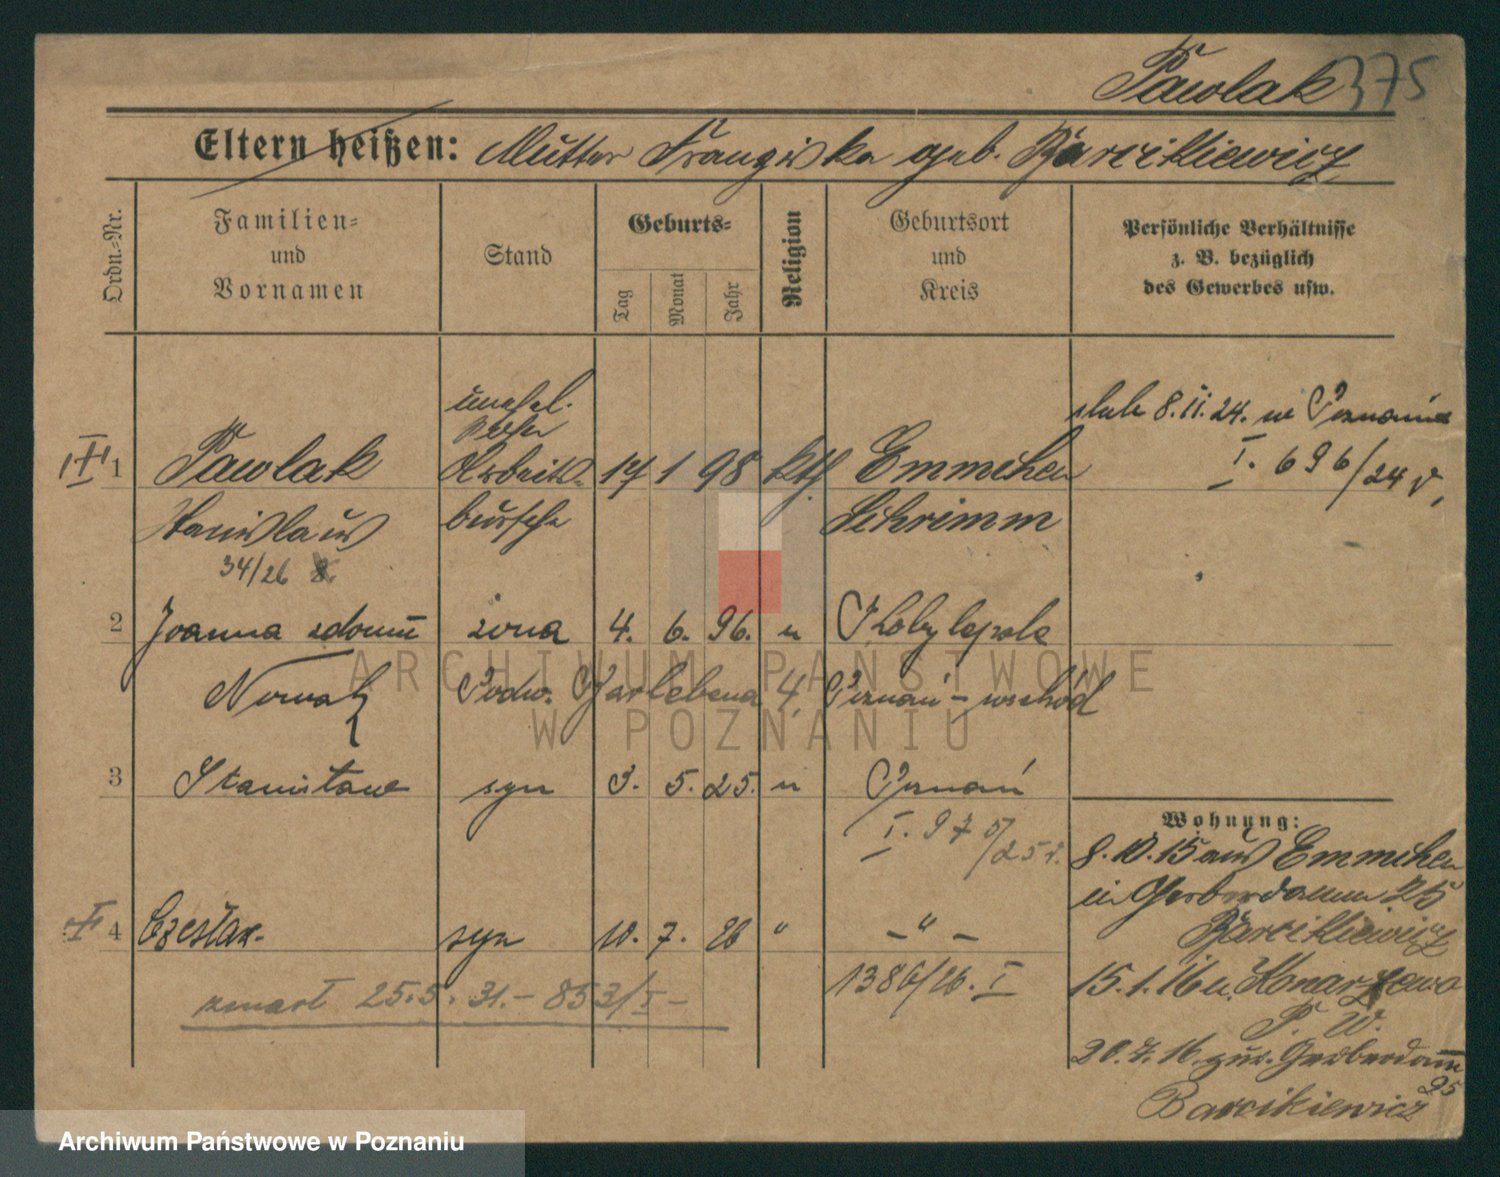 Pawlak 375
Eltern heißen: Mutter Franziska geb. Barcikiewicz
Ordn.=Nr.
Familien=
und
Vornamen
Stand
Geburts=
Tag
Monat
Jahr
Religion
Geburtsort
und
Kreis
Persönliche Verhältnisse
z. B. bezüglich
des Gewerbes usw.
unehel.
Sohn
1 Pawlak Arbeits= 17 1 98 kth Emmchen
Stanislaus bursche Schrimm
34/26
ślub 8.11.24. w Poznaniu
I. 696/24 r.
2 Joanna zdomu żona 4. 6. 96. " Kobylepole
Nowak Poznań-wschód
3 Stanisław syn 3. 5. 25. " Poznań
I. 975/25 r.
4 Czesław syn 10. 7. 26 " - " -
1386/26. I
zmarł 25.5.31.- 853/I-
Wohnung:
8.10.15 aus Emmchen
in Gerberdamm 25
Barcikiewicz
15.1.16 n. Konarzewo
P. W.
20.7.16 zur. Gerberdamm
25
Barcikiewicz
ARCHIWUM PAŃSTWOWE
W POZNANIU
Archiwum Państwowe w Poznaniu